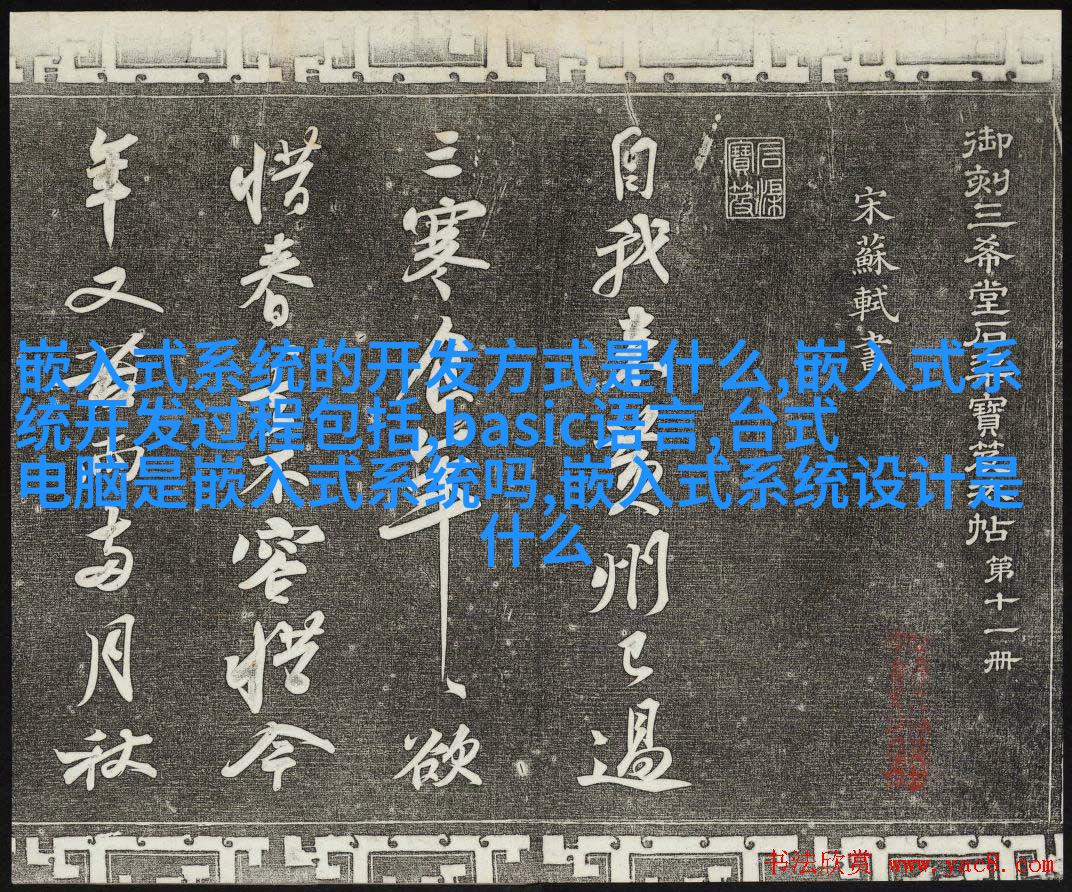 嵌入式系统的开发方式是什么,嵌入式系
统开发过程包括,basic语言,台式
电脑是嵌入式系统吗,嵌入式系统设计是
什么
御刻三希堂石渠寶笈法帖 第十一册
宋蘇軾書
石渠寶笈
自我来黄州已過
三寒食年〻欲
惜春去不容惜今
年又苦雨兩月秋
书法欣赏 www.yac8.com